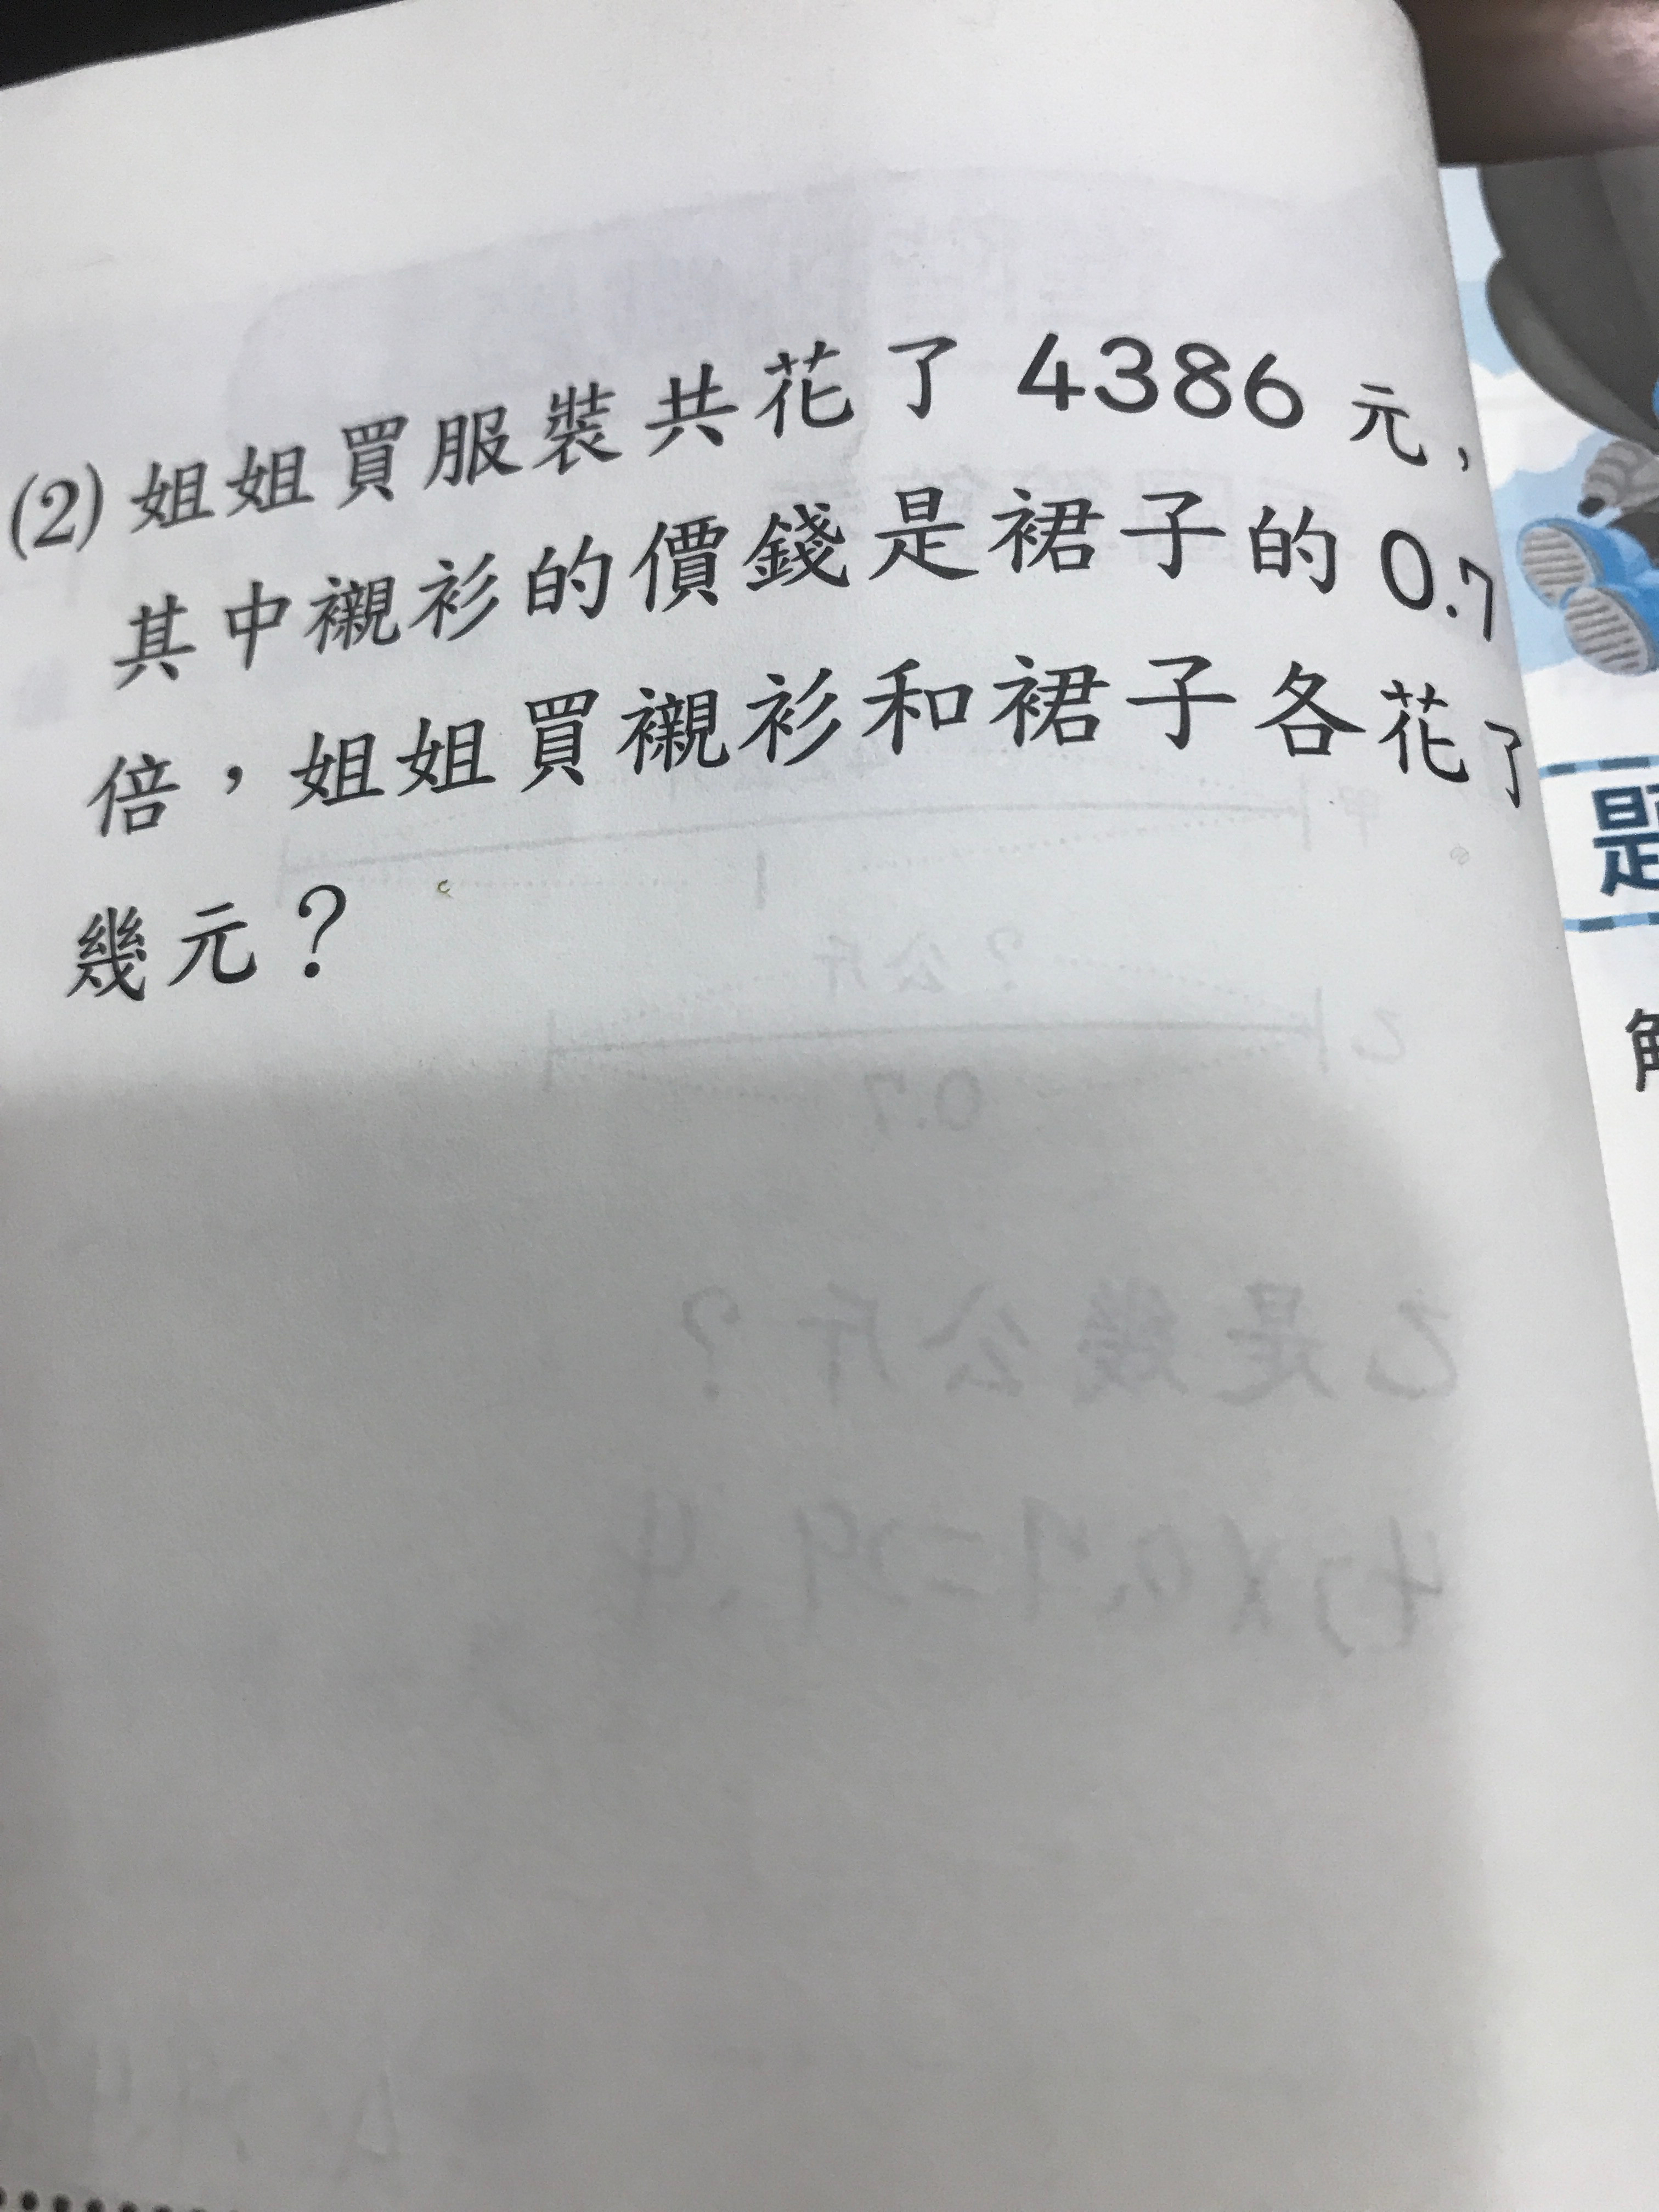 (2)姐姐買服裝共花了 4386 元，
其中襯衫的價錢是裙子的 0.7
倍，姐姐買襯衫和裙子各花了
幾元？
題
? 公斤
乙
0.7
乙是幾公斤？